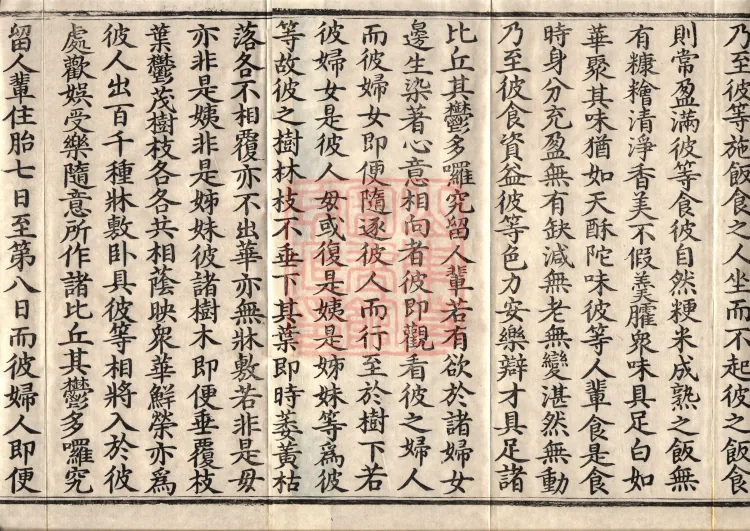 乃至彼等施飯食之人坐而不起彼之飯食
則常盈滿彼等食彼自然粳米成熟之飯無
有糠糩清淨香美不假羹臛衆味具足白如
華聚其味猶如天酥陀味彼等人輩食是食
時身分充盈無有缺減無老無變湛然無動
乃至彼食資益彼等色力安樂辯才具足諸
比丘其鬱多囉究留人輩若有欲於諸婦女
邊生染著心意相向者彼即觀看彼之婦人
而彼婦女即便隨逐彼人而行至於樹下若
彼婦女是彼人母或復是姨是姊妹等爲彼
等故彼之樹林枝不垂下其葉即時萎黃枯
落各不相覆亦不出華亦無牀敷若非是母
亦非是姨非是姊妹彼諸樹木即便垂覆枝
葉鬱茂樹枝各各共相蔭映衆華鮮榮亦爲
彼人出百千種牀敷卧具彼等相將入於彼
處歡娛受樂隨意所作諸比丘其鬱多囉究
留人輩住胎七日至第八日而彼婦人即便